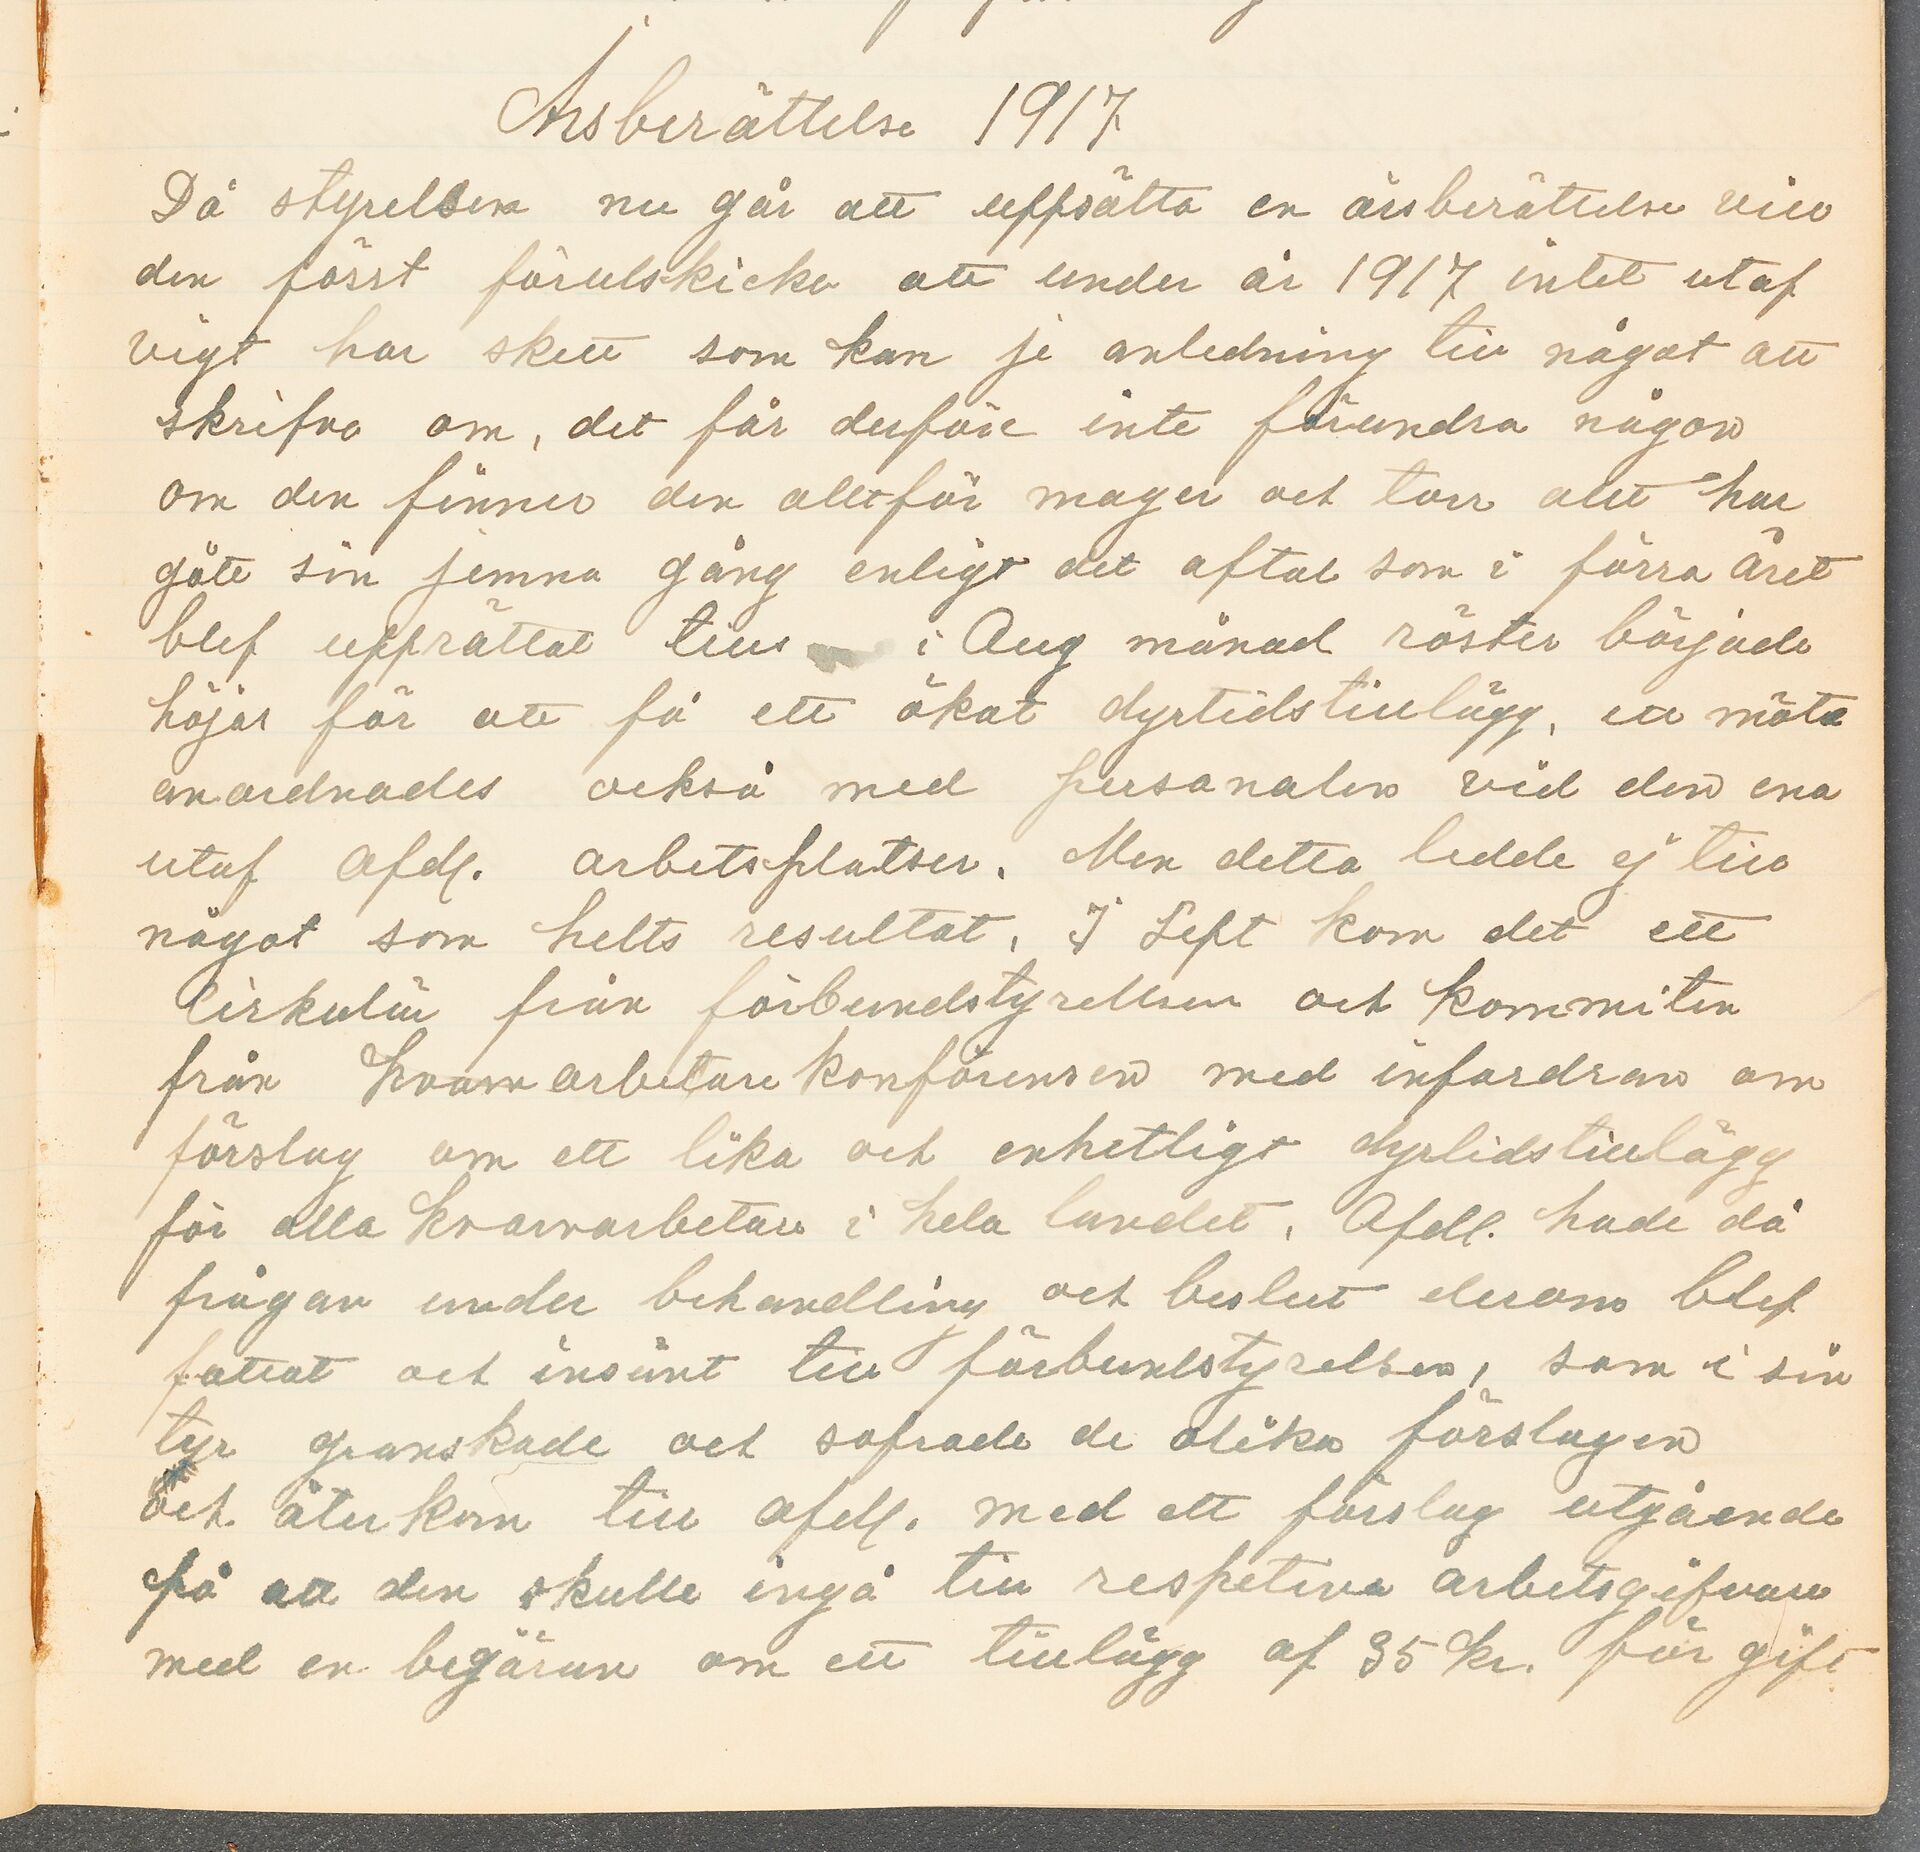 Årsberättelse 1917
Då styrelsen nu går att uppsätta en årsberättelse vill
den först förutskicka att under år 1917 intet utaf
vigt har skett som kan je anledning till något att
skrifva om, det får derföre inte förundra någon
om den finner den alltför mager och torr allt har
gått sin jemna gång enligt det aftal som i förra året
blef upprättat tills i Aug månad röster började
höjas för att få ett ökat dyrtidstillägg, ett möte
anordnades också med personalen vid den ena
utaf afdl. arbetsplatser. Men detta ledde ej till
något som helts resultat. I Sept kom det ett
Cirkulär från förbundstyrellsen och kommiten
från kvarnarbetare konförensen med infordran om
förslag om ett lika och enhetligt dyrtidstillägg
för alla kvarnarbetare i hela landet. Afdl. hade då
frågan under behandling och beslut derom blef
fattat och insänt till förbundstyrelsen, som i sin
tyr granskade och sofrade de olika förslagen
och återkom till afdl. med ett förslag utgående
på att den skulle ingå till respetiva arbetsgifvare
med en begäran om ett tillägg af 35 kr. för gift